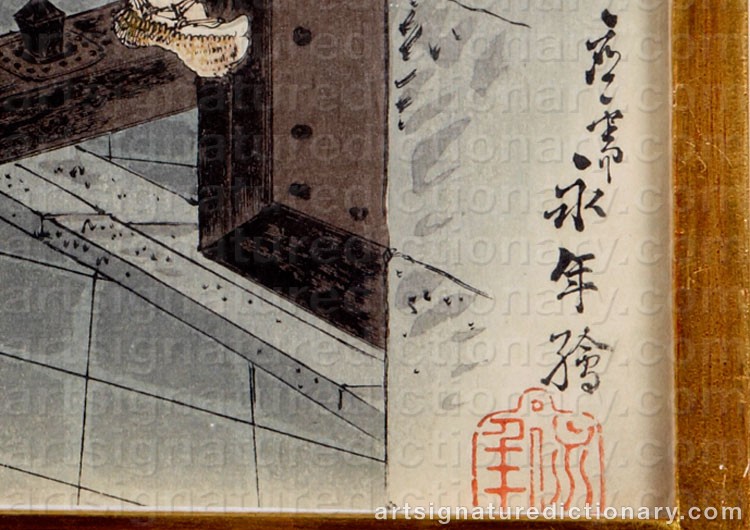 應需 永年繪
永年
artsignaturedictionary.com